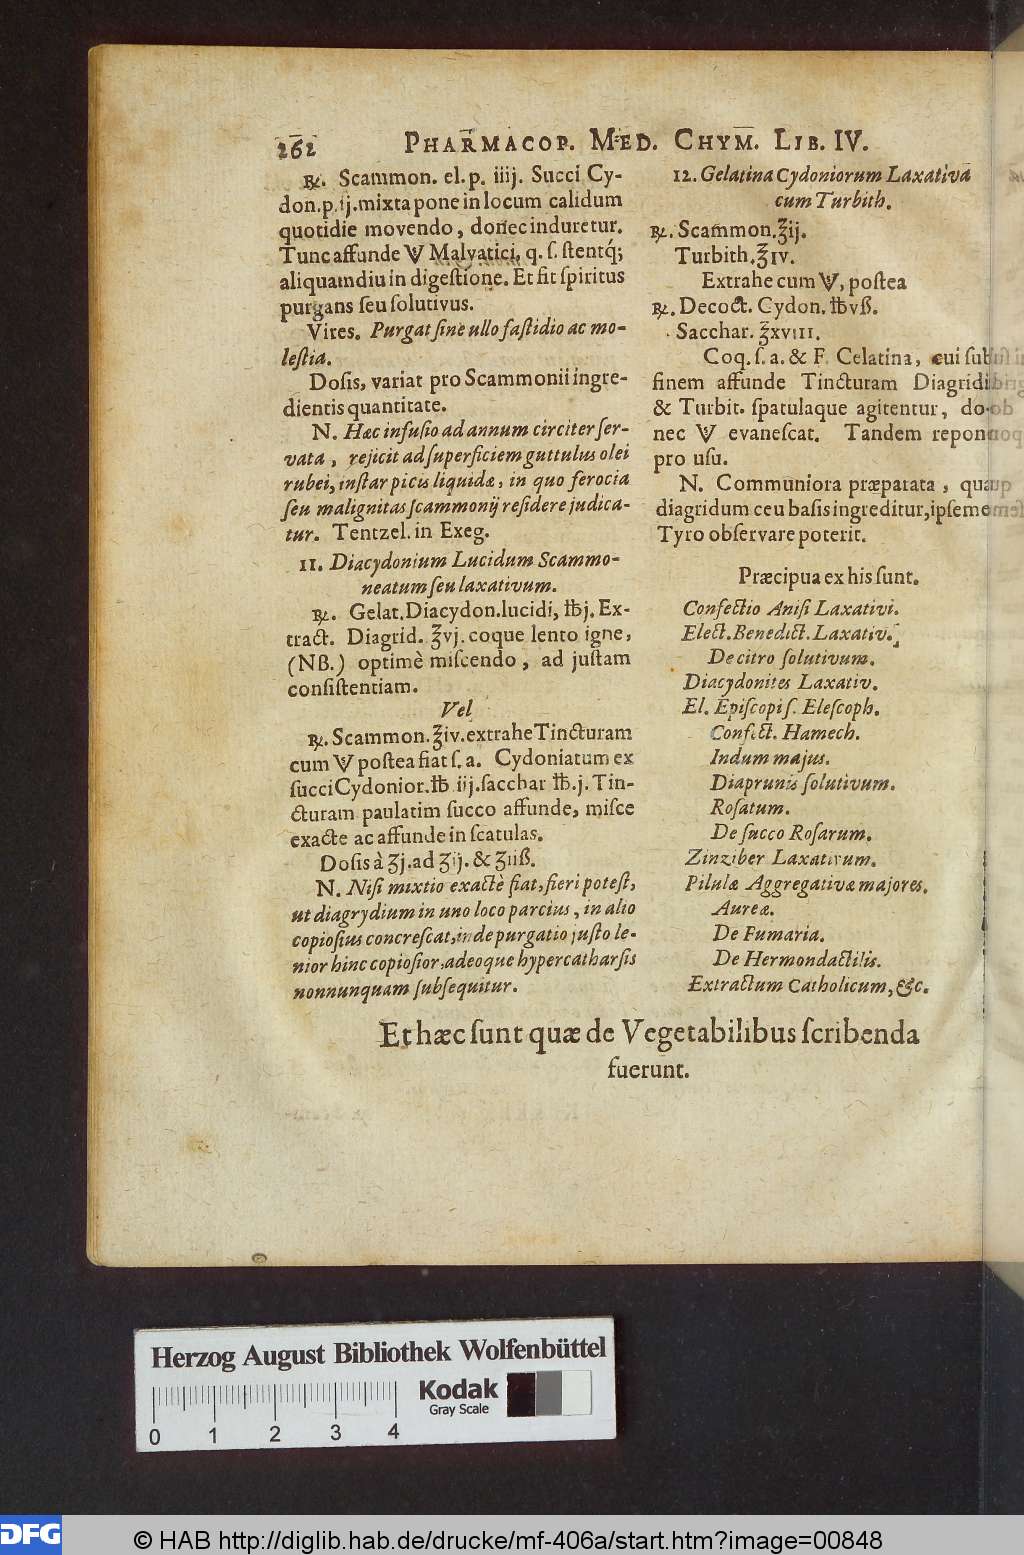 262 PHARMACOP. MED. CHYM. LIB. IV.
℞. Scammon. el. p. iiij. Succi Cy-
don. p. ij. mixta pone in locum calidum
quotidie movendo, donec induretur.
Tunc affunde V Malvatici, q. ſ. ſtentq́;
aliquamdiu in digeſtione. Et fit ſpiritus
purgans ſeu ſolutivus.
Vires. Purgat ſine ullo faſtidio ac mo-
leſtia.
Doſis, variat pro Scammonii ingre-
dientis quantitate.
N. Hæc infuſio ad annum circiter ſer-
vata, rejicit ad ſuperficiem guttulus olei
rubei, inſtar picis liquidæ, in quo ferocia
ſeu malignitas ſcammonij reſidere judica-
tur. Tentzel. in Exeg.
11. Diacydonium Lucidum Scammo-
neatum ſeu laxativum.
℞. Gelat. Diacydon. lucidi, ℔j. Ex-
tract. Diagrid. ℥vj. coque lento igne,
(NB.) optimè miſcendo, ad juſtam
conſiſtentiam.
Vel
℞. Scammon. ℥iv. extrahe Tincturam
cum V poſtea fiat ſ. a. Cydoniatum ex
ſucci Cydonior. ℔ iij. ſacchar ℔. j. Tin-
cturam paulatim ſucco affunde, miſce
exacte ac affunde in ſcatulas.
Doſis à ʒj. ad ʒij. & ʒiiß.
N. Niſi mixtio exactè fiat, fieri poteſt,
ut diagrydium in uno loco parcius, in alio
copioſius concreſcat, inde purgatio juſto le-
nior hinc copioſior, adeoque hypercatharſis
nonnunquam ſubſequitur.
12. Gelatina Cydoniorum Laxativa
cum Turbith.
℞. Scammon. ℥ij.
Turbith. ℥iv.
Extrahe cum V, poſtea
℞. Decoct. Cydon. ℔vß.
Sacchar. ℥xviii.
Coq. ſ. a. & F. Celatina, cui ſub
finem affunde Tincturam Diagridi
& Turbit. ſpatulaque agitentur, do-
nec V evaneſcat. Tandem repone
pro uſu.
N. Communiora præparata, quæ
diagridum ceu baſis ingreditur, ipſemet
Tyro obſervare poterit.
Præcipua ex his ſunt.
Confectio Aniſi Laxativi.
Elect. Benedict. Laxativ.
De citro ſolutivum.
Diacydonites Laxativ.
El. Epiſcopi ſ. Eleſcoph.
Confect. Hamech.
Indum majus.
Diaprunis ſolutivum.
Roſatum.
De ſucco Roſarum.
Zinziber Laxativum.
Pilulæ Aggregativæ majores.
Aureæ.
De Fumaria.
De Hermondactilis.
Extractum Catholicum, &c.
Et hæc ſunt quæ de Vegetabilibus ſcribenda
fuerunt.
Herzog August Bibliothek Wolfenbüttel
Kodak
Gray Scale
0 1 2 3 4
DFG
© HAB http://diglib.hab.de/drucke/mf-406a/start.htm?image=00848